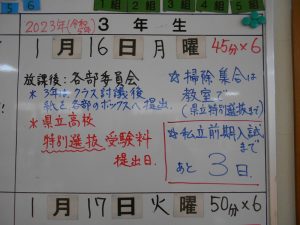 5 6
1組 2組 3組 4組
2023年(令和5年) 3年生
1月16日月曜 45分×6
放課後:各部委員会
☆3年はクラス討議後
紙を各部のボックスへ提出。
★県立高校
特別選抜受験料
提出日.
☆掃除集合は
教室で
(県立特別選抜まで)
☆私立前期入試
まで
あと3日.
1月17日火曜 50分×6